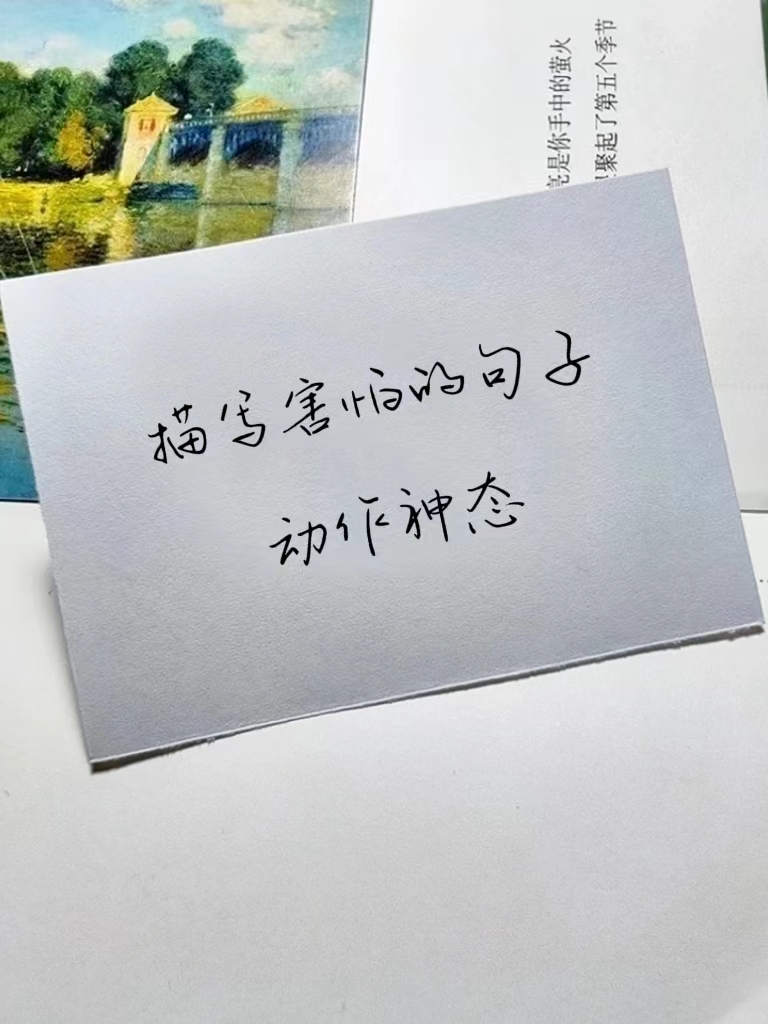 亮是你手中的萤火
聚起了第五个季节
描写害怕的句子
动作神态